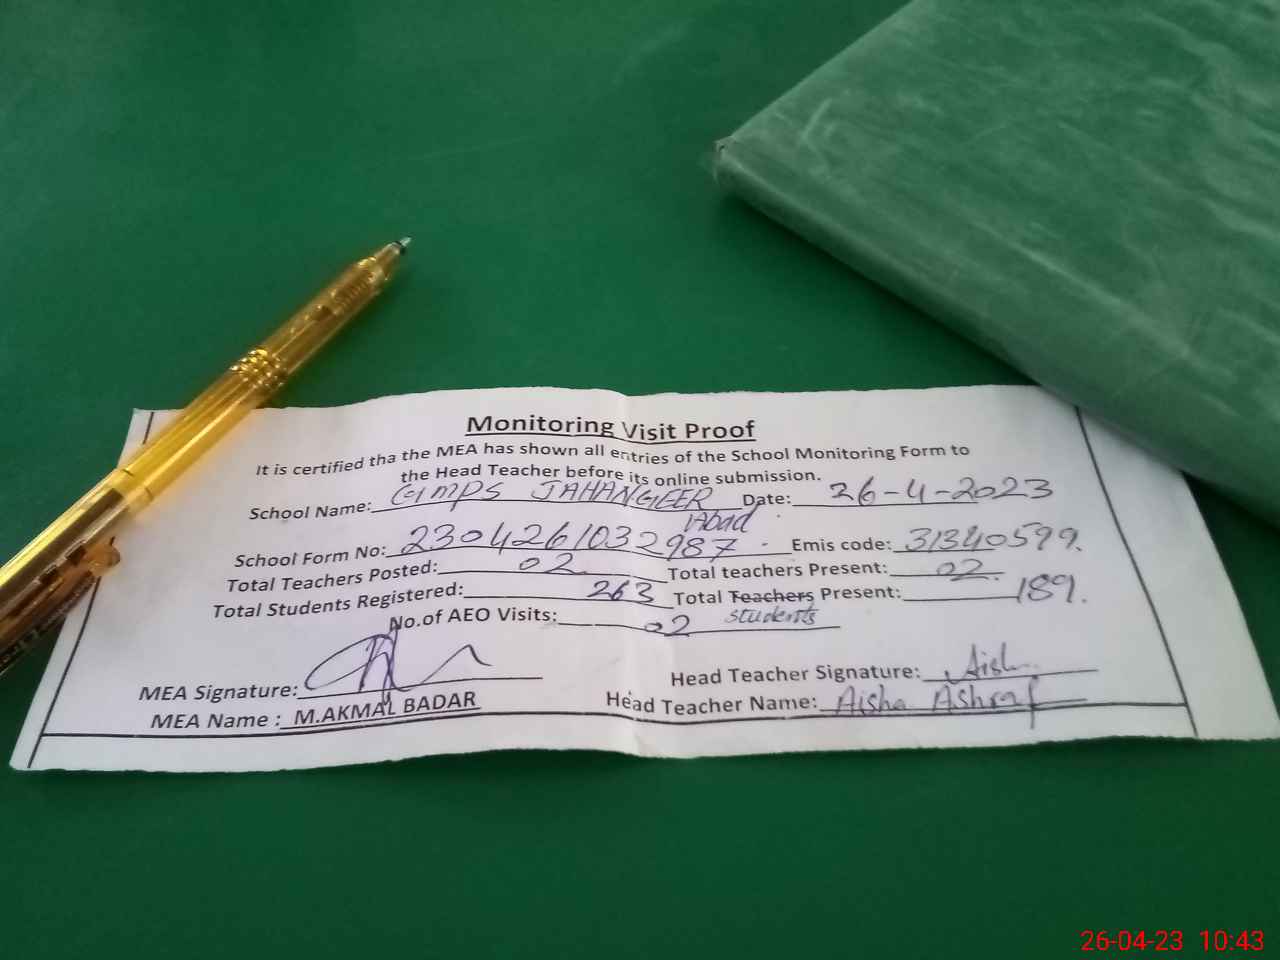 Monitoring Visit Proof
It is certified tha the MEA has shown all entries of the School Monitoring Form to
the Head Teacher before its online submission.
School Name: GMPS JAHANGEER Abad Date: 26-4-2023
School Form No: 2304261032987 Emis code: 31340599.
Total Teachers Posted: 02 Total teachers Present: 02.
Total Students Registered: 263 Total Teachers Present: 189.
students
No.of AEO Visits: 02
MEA Signature: Head Teacher Signature: Aish
MEA Name : M.AKMAL BADAR Head Teacher Name: Aisha Ashraf
26-04-23 10:43